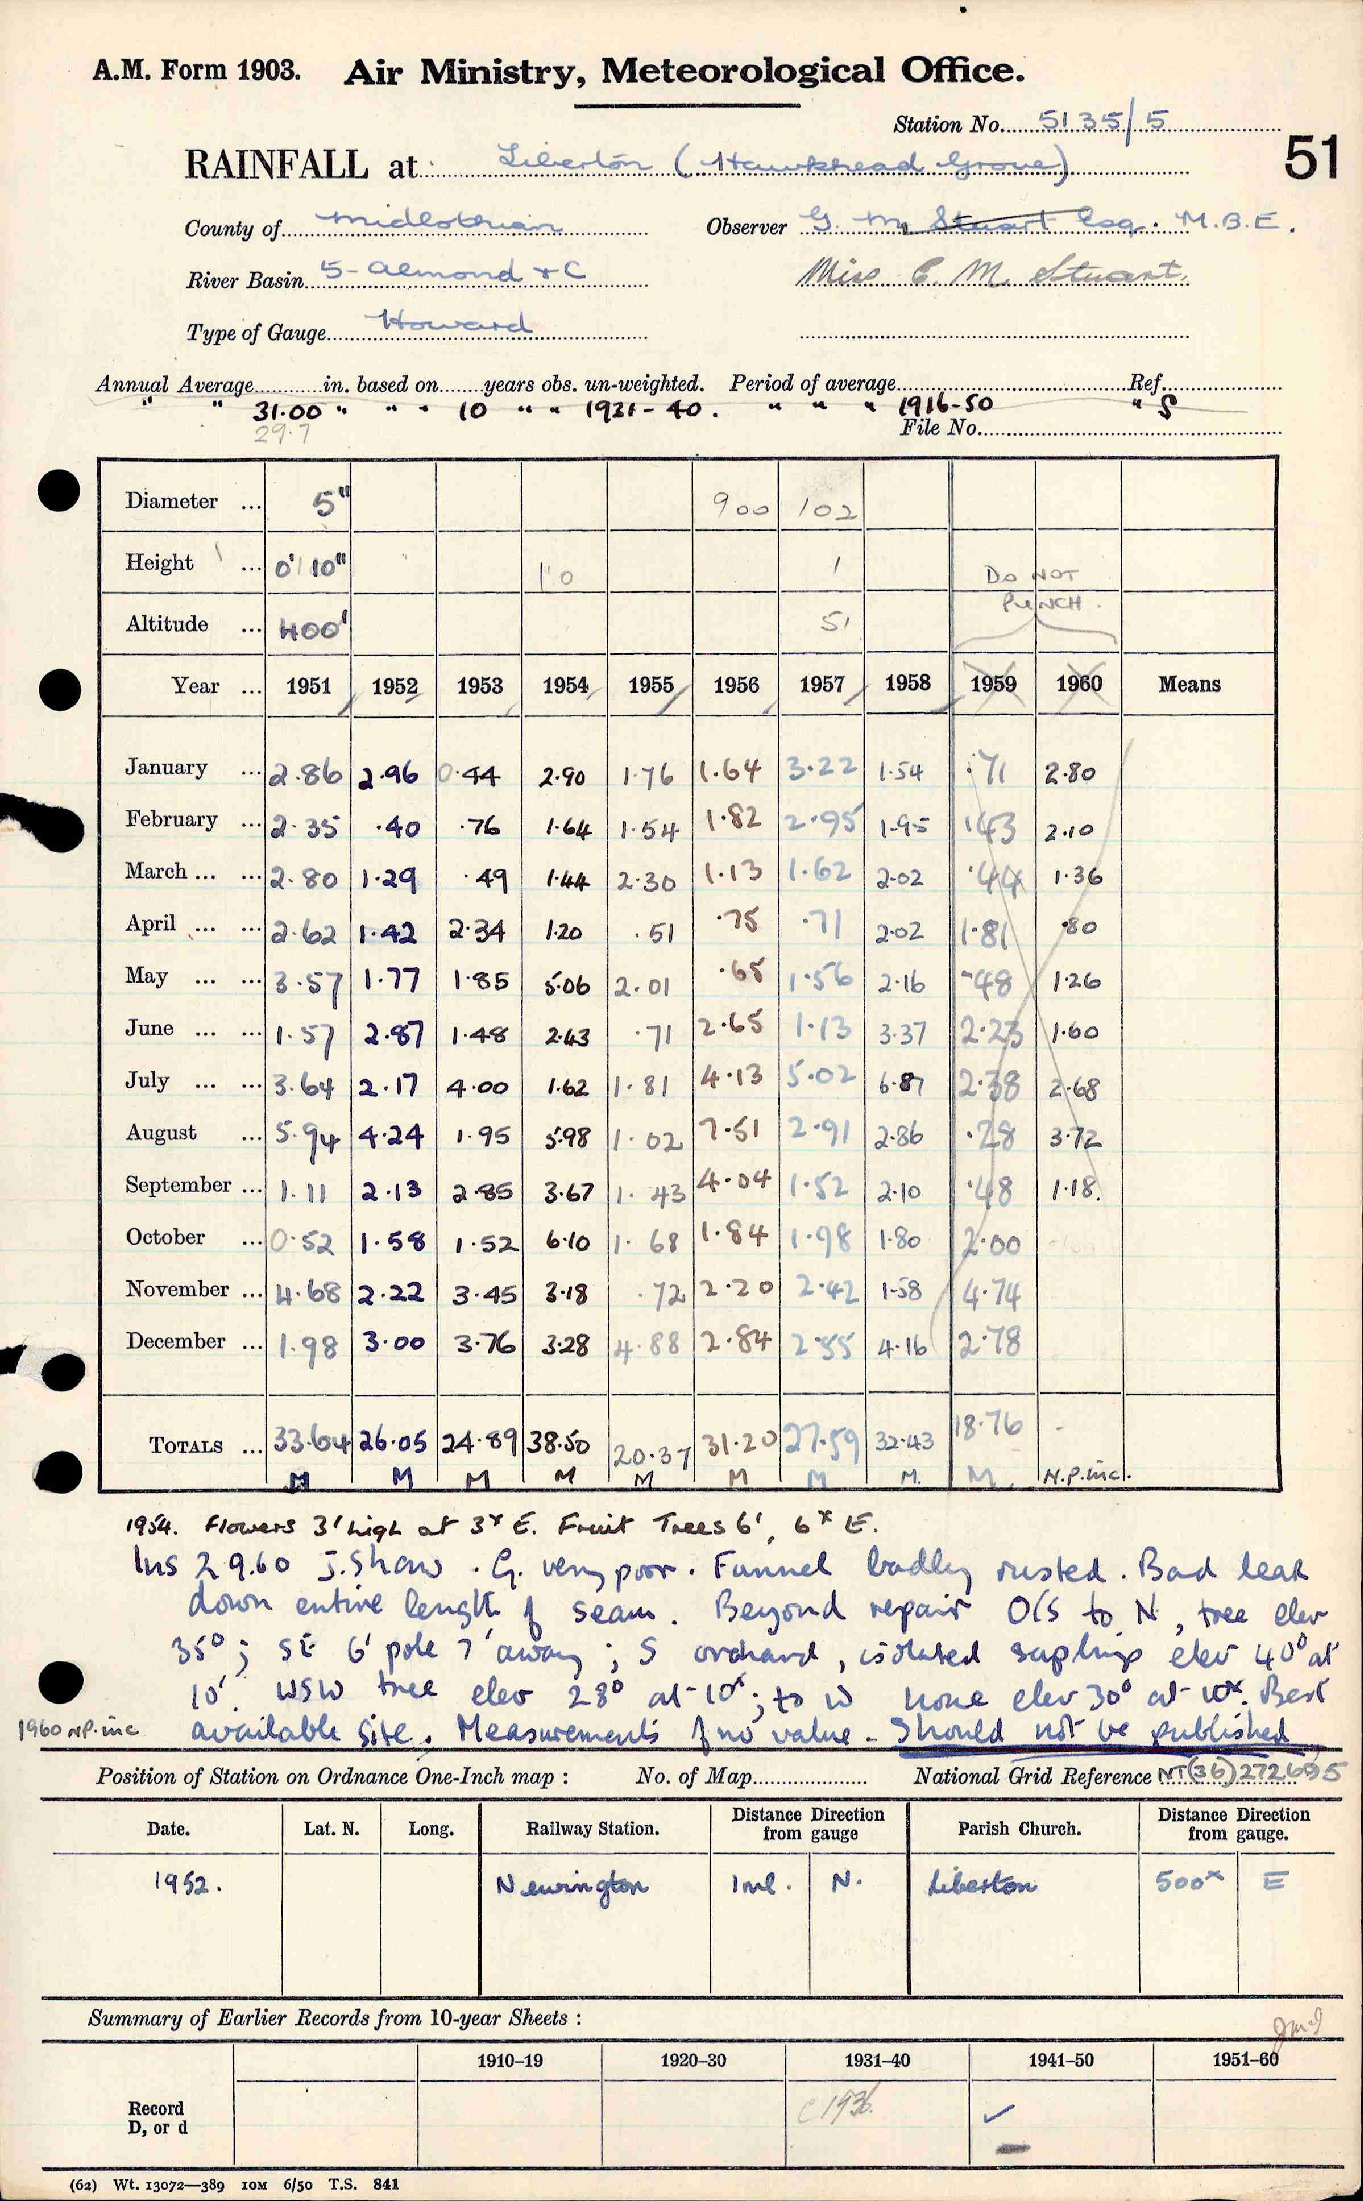 A.M. Form 1903. Air Ministry, Meteorological Office.
Station No. 5135/5
51
RAINFALL at Liberton (Hawkhead Grove)
County of Midlothian Observer G. M. Stuart Esq. M.B.E.
River Basin 5- Almond & C Miss C. M. Stuart.
Type of Gauge Howard
Annual Average in. based on years obs. un-weighted. Period of average Ref.
" " 31.00 " " " 10 " " 1931-40. " " " 1916-50 " S
29.7 File No.
Diameter ... 5" 900 102
Height ... 0' 10" 1'0 1 DO NOT
Altitude ... 400' 51 PUNCH.
Year ... 1951 1952 1953 1954 1955 1956 1957 1958 1959 1960 Means
January ... 2.86 2.96 0.44 2.90 1.76 1.64 3.22 1.54 .71 2.80
February ... 2.35 .40 .76 1.64 1.54 1.82 2.95 1.95 .43 2.10
March ... ... 2.80 1.29 .49 1.44 2.30 1.13 1.62 2.02 .44 1.36
April ... ... 2.62 1.42 2.34 1.20 .51 .75 .71 2.02 1.81 .80
May ... ... 3.57 1.77 1.85 5.06 2.01 .65 1.56 2.16 .48 1.26
June ... ... 1.57 2.87 1.48 2.43 .71 2.65 1.13 3.37 2.23 1.60
July ... ... 3.64 2.17 4.00 1.62 1.81 4.13 5.02 6.87 2.38 2.68
August ... 5.94 4.24 1.95 5.98 1.02 7.51 2.91 2.86 .28 3.72
September ... 1.11 2.13 2.85 3.67 1.43 4.04 1.52 2.10 .48 1.18.
October ... 0.52 1.58 1.52 6.10 1.68 1.84 1.98 1.80 2.00
November ... 4.68 2.22 3.45 3.18 .72 2.20 2.42 1.58 4.74
December ... 1.98 3.00 3.76 3.28 4.88 2.84 2.55 4.16 2.78
TOTALS ... 33.64 26.05 24.89 38.50 20.37 31.20 27.59 32.43 18.76 -
M M M M M M M M. M. N.P.inc.
1954. Flowers 3' high at 3x E. Fruit Trees 6', 6x E.
Ins 2 9.60 J. Shaw. G. very poor. Funnel badly rusted. Bad leak
down entire length of seam. Beyond repair O/S to N, tree elev
35°; SE 6' pole 7' away; S orchard, isolated saplings elev 40° at
10'. WSW tree elev 28° at 10x; to W house elev 30° at 10x. Best
1960 N.P. inc available site. Measurements of no value - Should not be published
Position of Station on Ordnance One-Inch map : No. of Map National Grid Reference NT(36)272695
Date. Lat. N. Long. Railway Station. Distance Direction from gauge Parish Church. Distance Direction from gauge.
1952. Newington 1 ml. N. Liberton 500x E
Summary of Earlier Records from 10-year Sheets :
1910-19 1920-30 1931-40 1941-50 1951-60
Record D, or d c 1936. ✓
(62) Wt. 13072—389 10M 6/50 T.S. 841